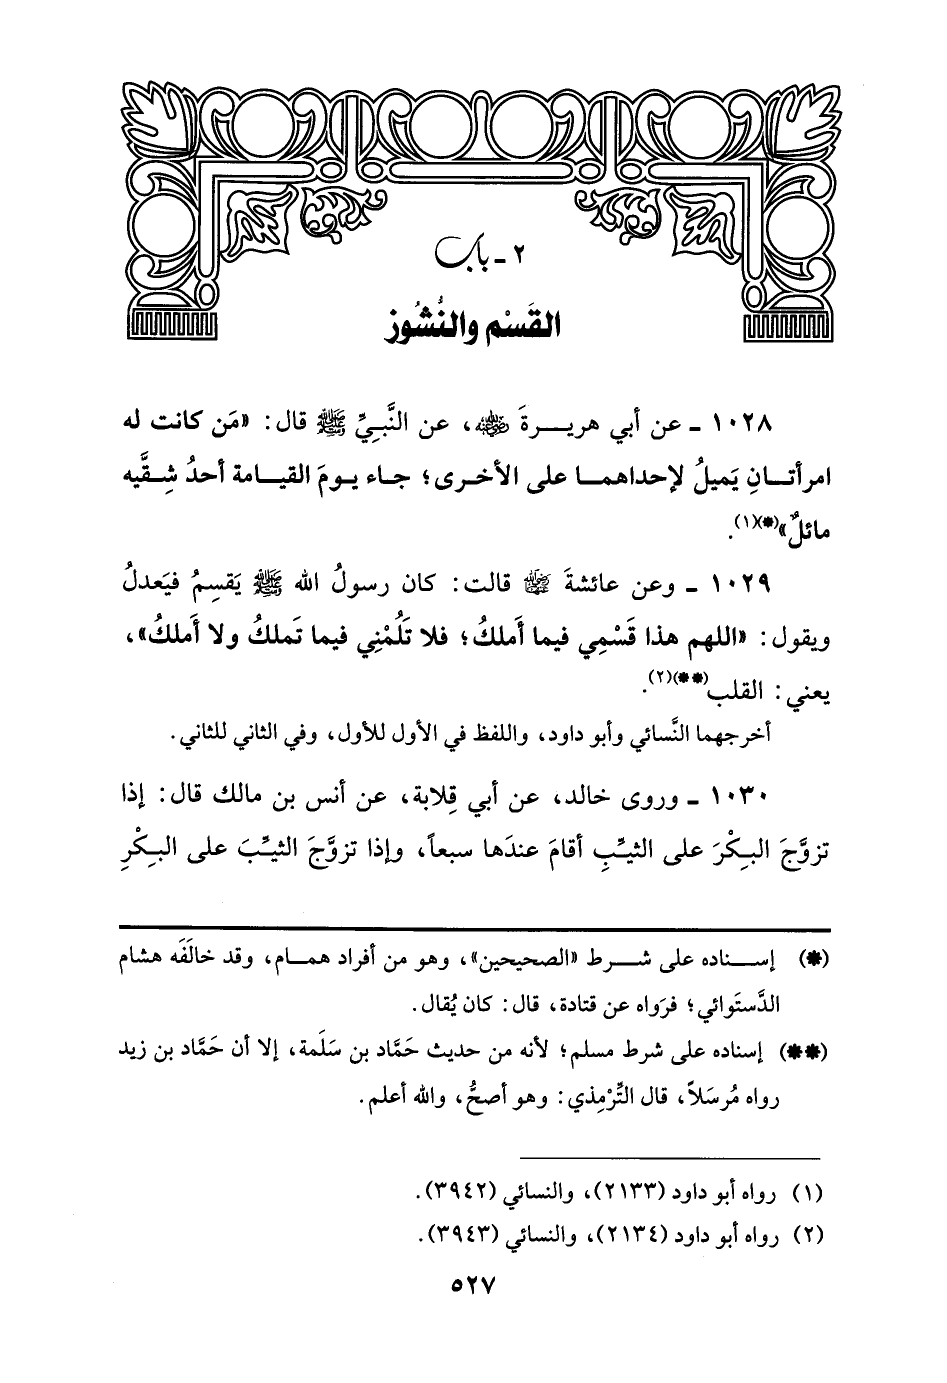 ٢ - باب
القَسْم والنُّشُوز
١٠٢٨ - عن أبي هريرةَ رضي الله عنه، عن النَّبيِّ ﷺ قال: «مَن كانت له
امرأتانِ يَميلُ لإحداهما على الأخرى؛ جاء يومَ القيامة أحدُ شِقَّيه
مائلٌ»(*)(١).
١٠٢٩ - وعن عائشةَ رضي الله عنها قالت: كان رسولُ الله ﷺ يَقسِمُ فيَعدلُ
ويقول: «اللهم هذا قَسْمِي فيما أَملكُ؛ فلا تَلُمْنِي فيما تَملكُ ولا أَملكُ»،
يعني: القلب(**)(٢).
أخرجهما النَّسائي وأبو داود، واللفظ في الأول للأول، وفي الثاني للثاني.
١٠٣٠ - وروى خالد، عن أبي قِلابة، عن أنس بن مالك قال: إذا
تزوَّجَ البِكْرَ على الثيِّبِ أقامَ عندَها سبعاً، وإذا تزوَّجَ الثيِّبَ على البِكْرِ
(*) إسناده على شرط «الصحيحين»، وهو من أفراد همام، وقد خالَفَه هشام
الدَّستَوائي؛ فرَواه عن قتادة، قال: كان يُقال.
(**) إسناده على شرط مسلم؛ لأنه من حديث حَمَّاد بن سَلَمة، إلا أن حَمَّاد بن زيد
رواه مُرسَلاً، قال التِّرْمِذي: وهو أصحُّ، والله أعلم.
(١) رواه أبو داود (٢١٣٣)، والنسائي (٣٩٤٢).
(٢) رواه أبو داود (٢١٣٤)، والنسائي (٣٩٤٣).
٥٢٧